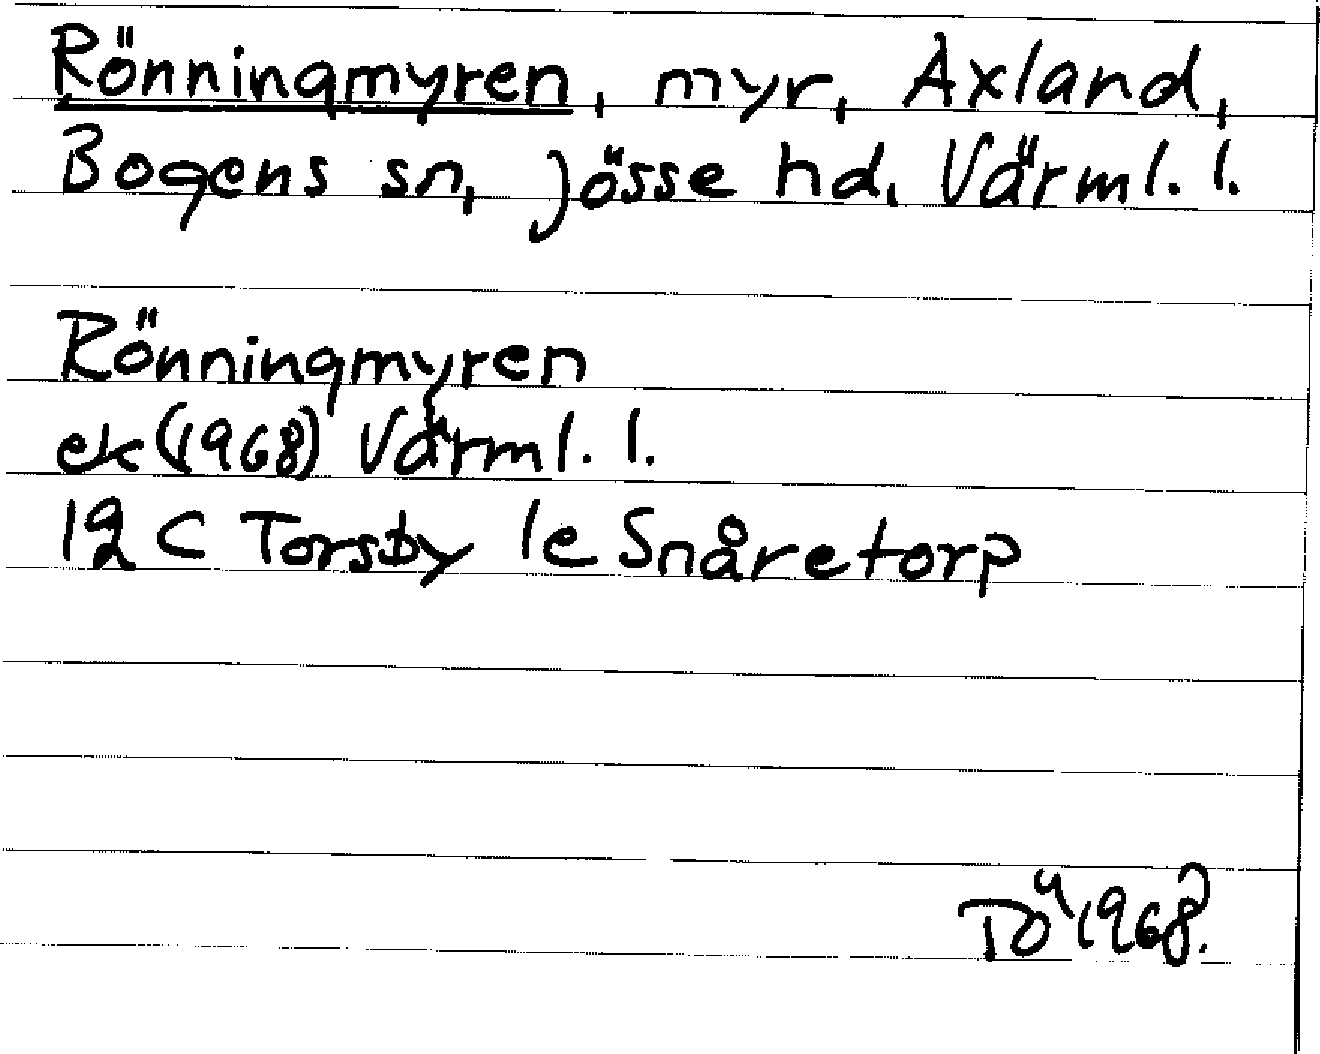 Rönningmyren, myr, Axland,
Bogens sn, Jösse hd, Värml. l.
Rönningmyren
ek (1968) Värml. l.
12 C Torsby 1e Snåretorp
TÖ 1968.